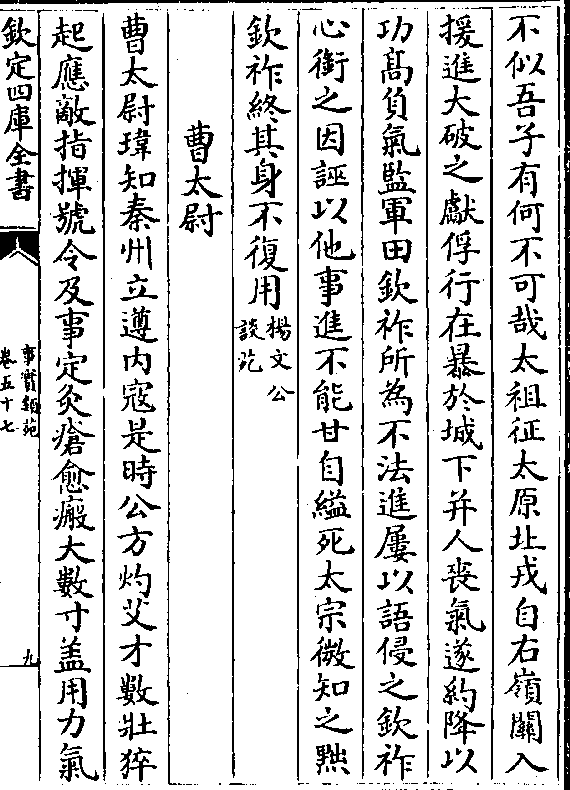 不似吾子有何不可哉太祖征太原北戎自右嶺關入
援進大破之獻俘行在暴於城下并人喪氣遂約降以
功髙負氣監軍田欽祚所為不法進屢以語侵之欽祚
心銜之因誣以他事進不能甘自縊死太宗微知之黜
欽祚終其身不復用楊文公談苑
曹太尉
曹太尉瑋知秦州立遵内寇是時公方灼艾才數壯猝
起應敵指揮號令及事定灸瘡愈瘢大數寸葢用力氣
欽定四庫全書
事實類苑
卷五十七
九